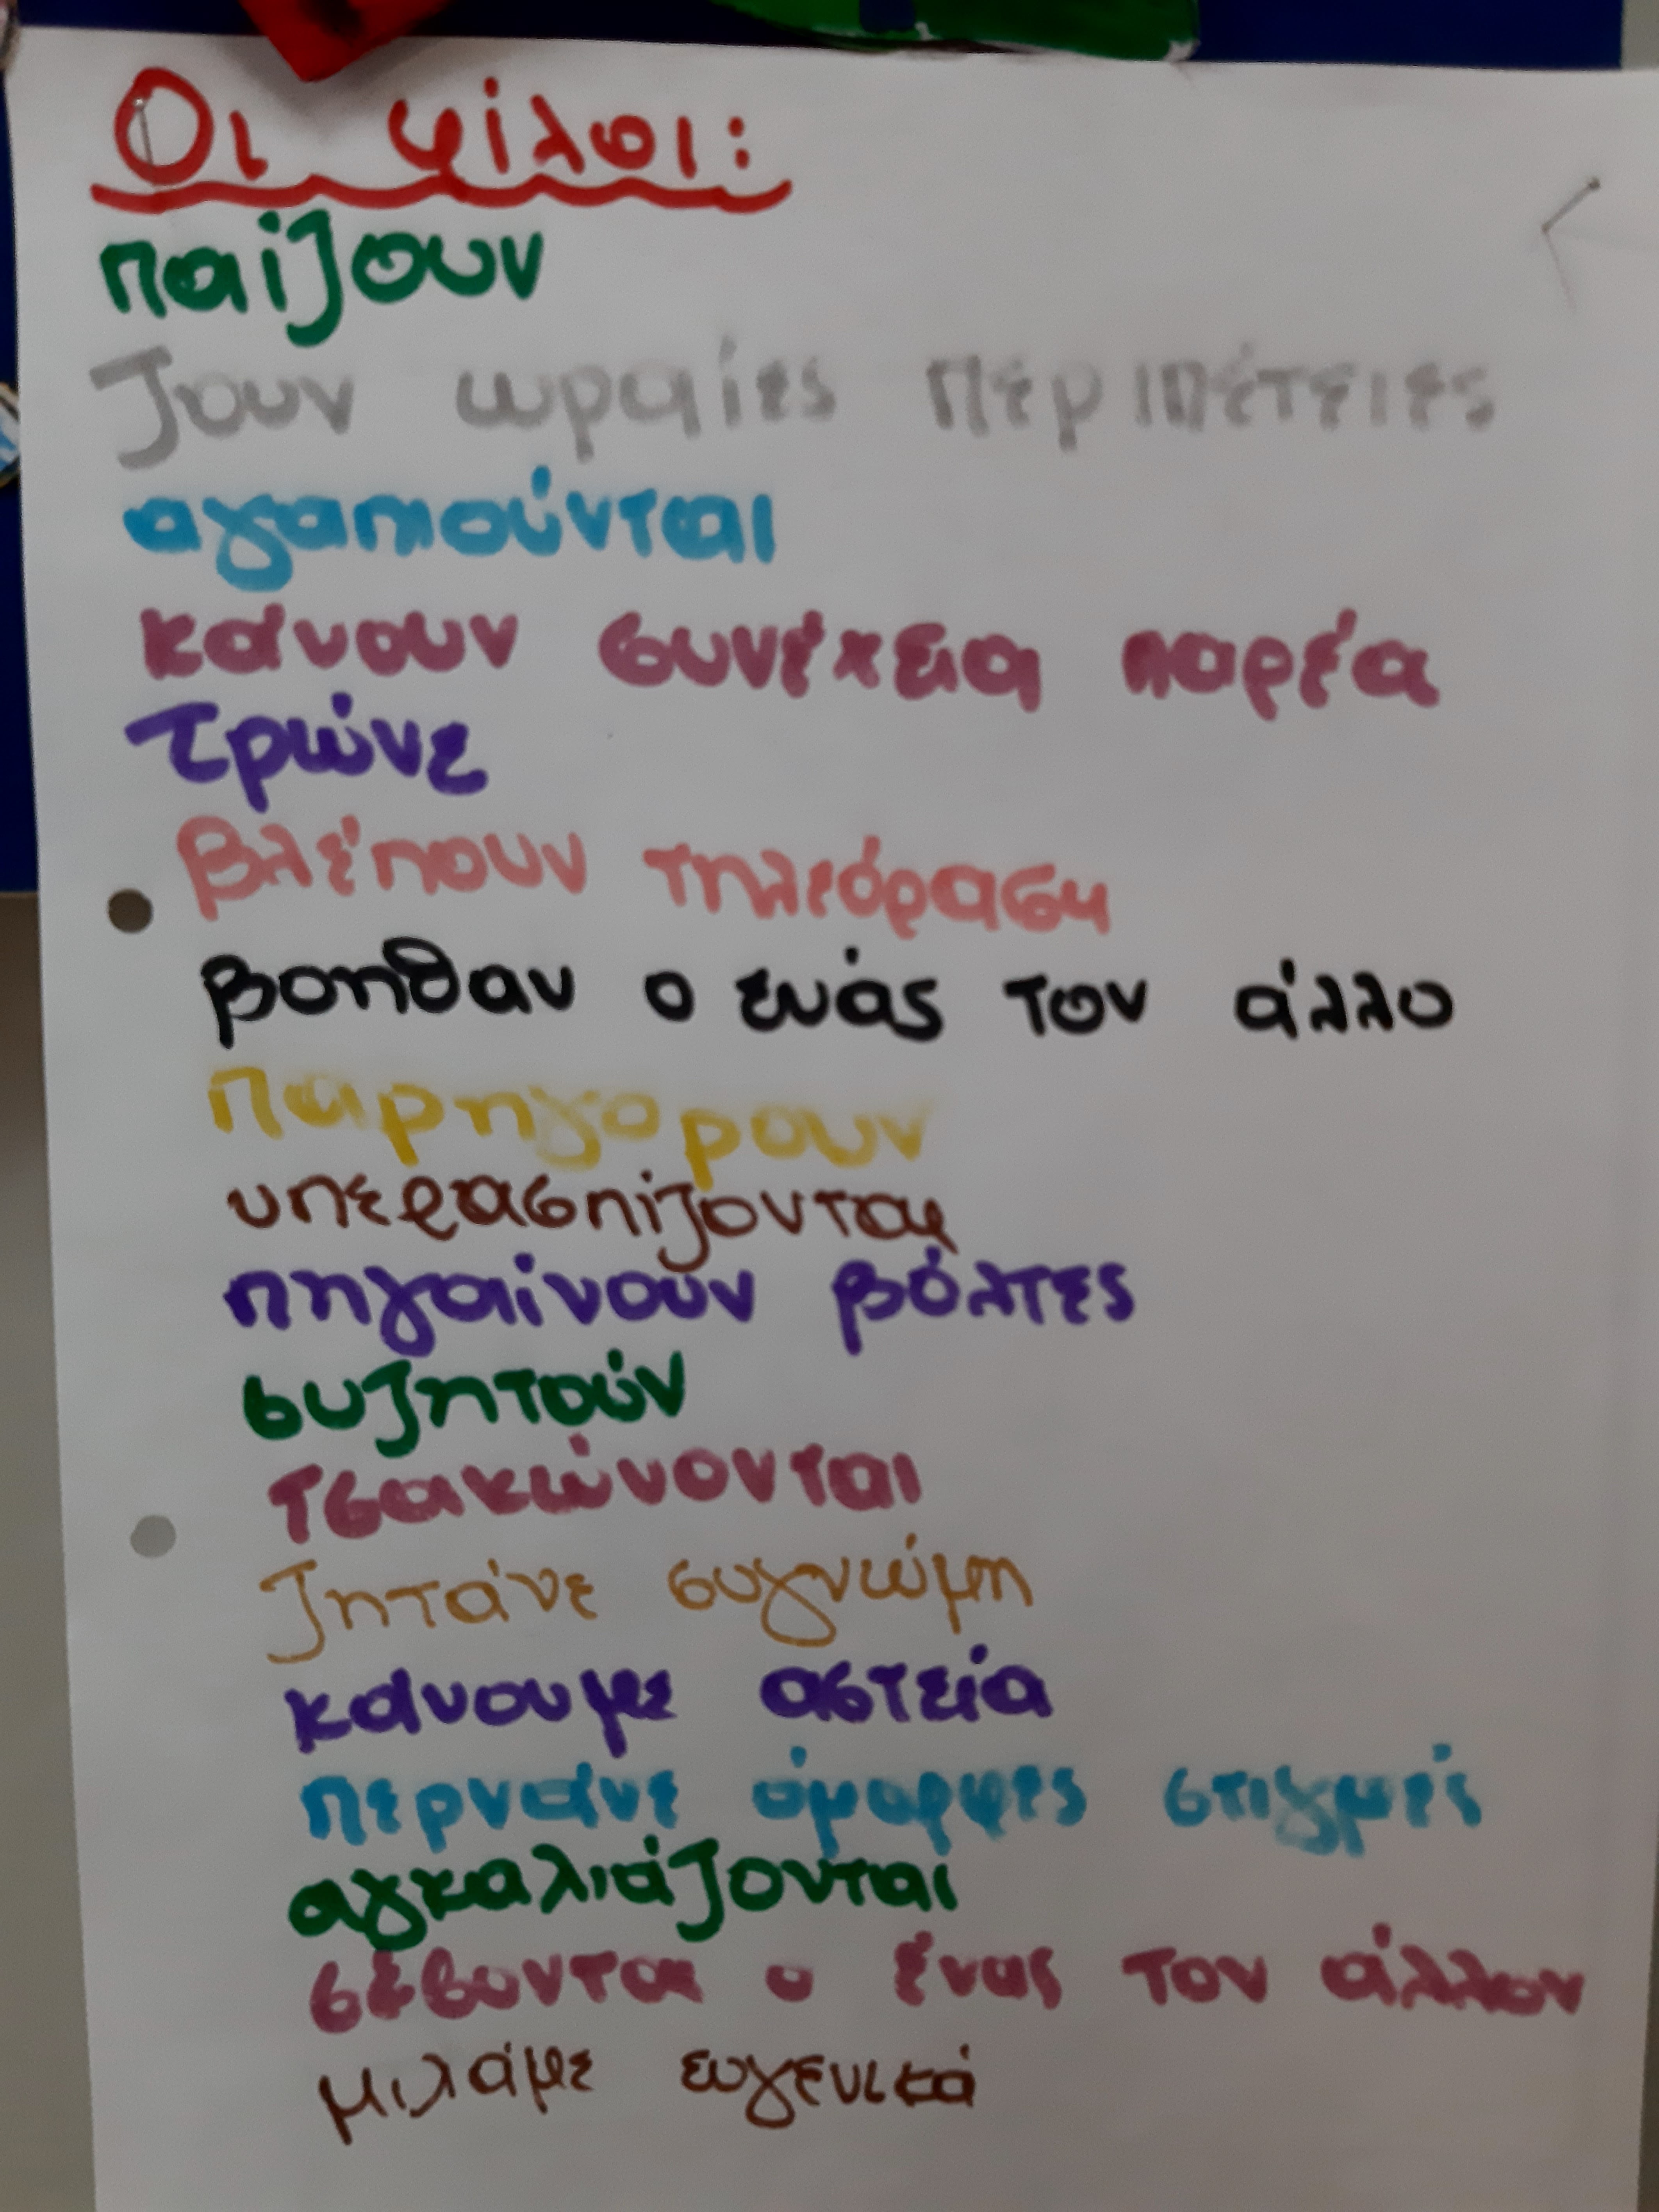 Οι φίλοι:
παίζουν
ζουν ωραίες περιπέτειες
αγαπιούνται
κάνουν συνέχεια παρέα
τρώνε
βλέπουν τηλεόραση
βοηθαν ο ενάς τον άλλο
παρηγορουν
υπερασπίζονται
πηγαίνουν βόλτες
συζητούν
τσακώνονται
ζητάνε συγνώμη
κάνουμε αστεία
περνάνε όμορφες στιγμές
αγκαλιάζονται
σέβονται ο ένας τον άλλον
μιλάμε ευγενικά